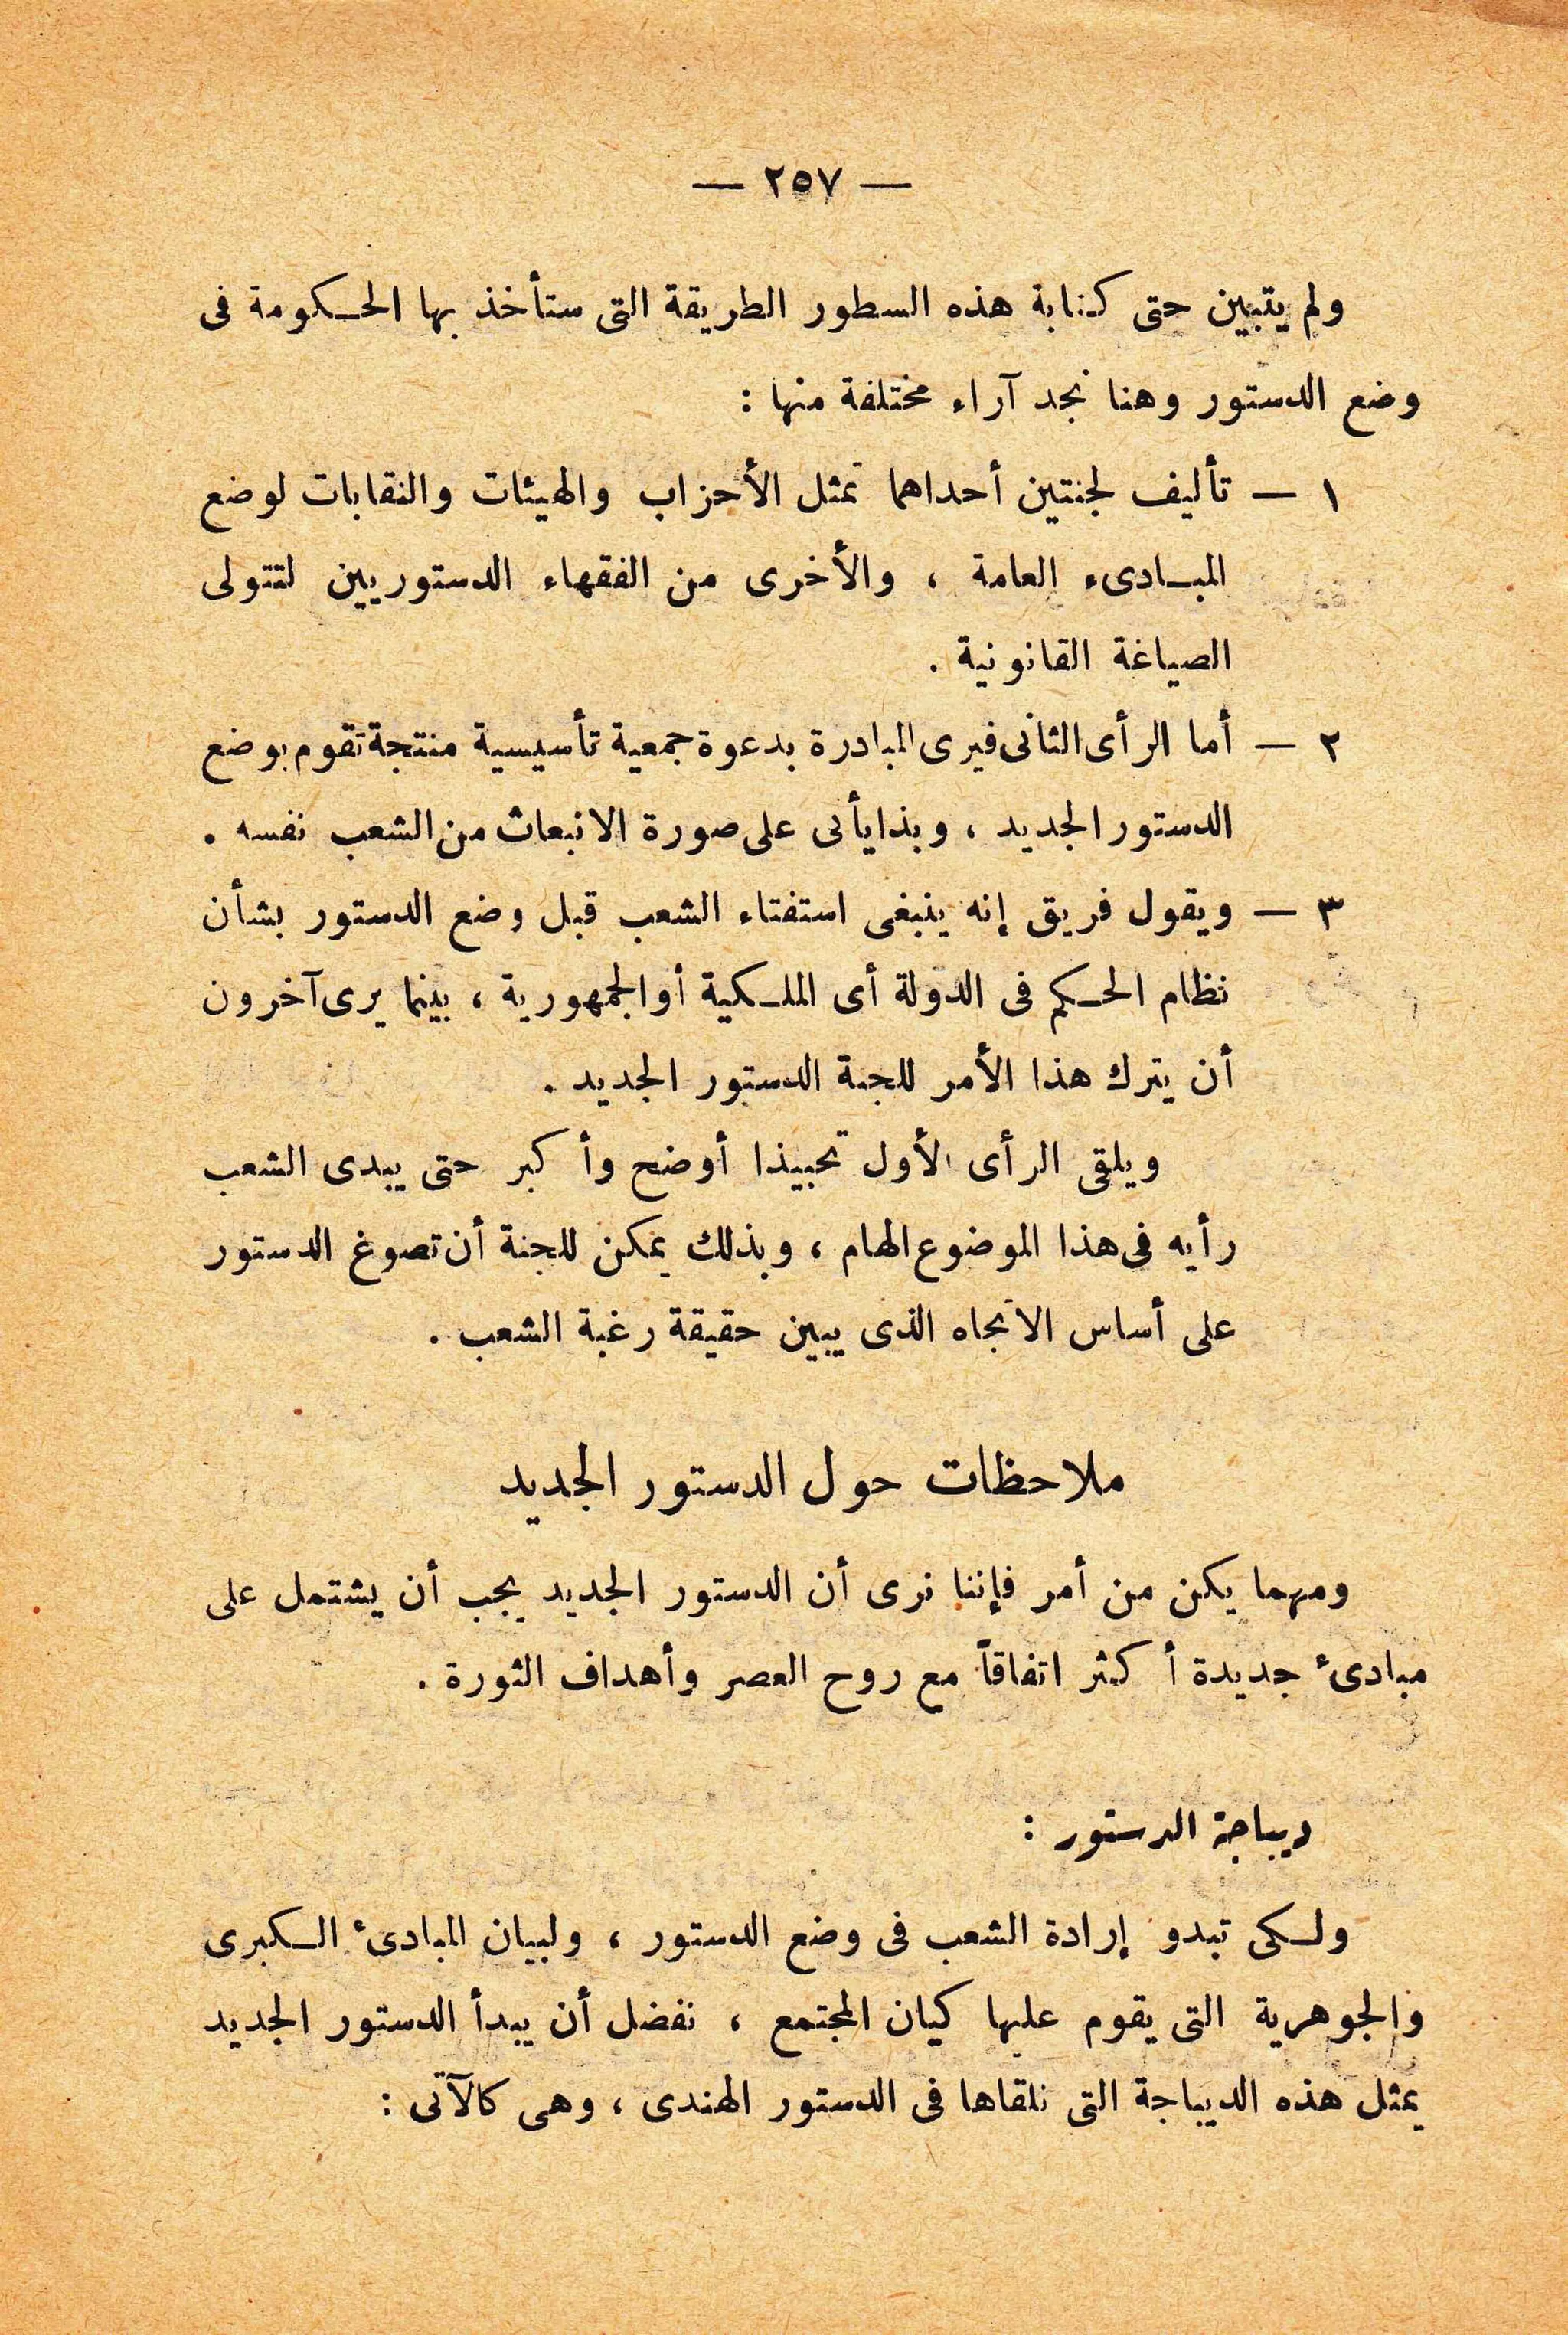 — ٢٥٧ —
ولم يتبين حتى كتابة هذه السطور الطريقة التى ستأخذ بها الحكومة فى
وضع الدستور وهنا نجد آراء مختلفة منها :
١ — تأليف لجنتين أحداهما تمثل الأحزاب والهيئات والنقابات لوضع
المبادىء العامة ، والأخرى من الفقهاء الدستوريين لتتولى
الصياغة القانونية .
٢ — أما الرأى الثانى فيرى المبادرة بدعوة جمعية تأسيسية منتجة تقوم بوضع
الدستور الجديد ، وبذا يأتى على صورة الانبعاث من الشعب نفسه .
٣ — ويقول فريق إنه ينبغى استفتاء الشعب قبل وضع الدستور بشأن
نظام الحكم فى الدولة أى الملكية أو الجمهورية ، بينما يرى آخرون
أن يترك هذا الأمر للجنة الدستور الجديد .
ويلقى الرأى الأول تحبيذا أوضح وأكبر حتى يبدى الشعب
رأيه فى هذا الموضوع الهام ، وبذلك يمكن للجنة أن تصوغ الدستور
على أساس الاتجاه الذى يبين حقيقة رغبة الشعب .
ملاحظات حول الدستور الجديد
ومهما يكن من أمر فإننا نرى أن الدستور الجديد يجب أن يشتمل على
مبادئ جديدة أكثر اتفاقاً مع روح العصر وأهداف الثورة .
ديباجة الدستور :
ولكى تبدو إرادة الشعب فى وضع الدستور ، ولبيان المبادئ الكبرى
والجوهرية التى يقوم عليها كيان المجتمع ، نفضل أن يبدأ الدستور الجديد
بمثل هذه الديباجة التى نلقاها فى الدستور الهندى ، وهى كالآتى :